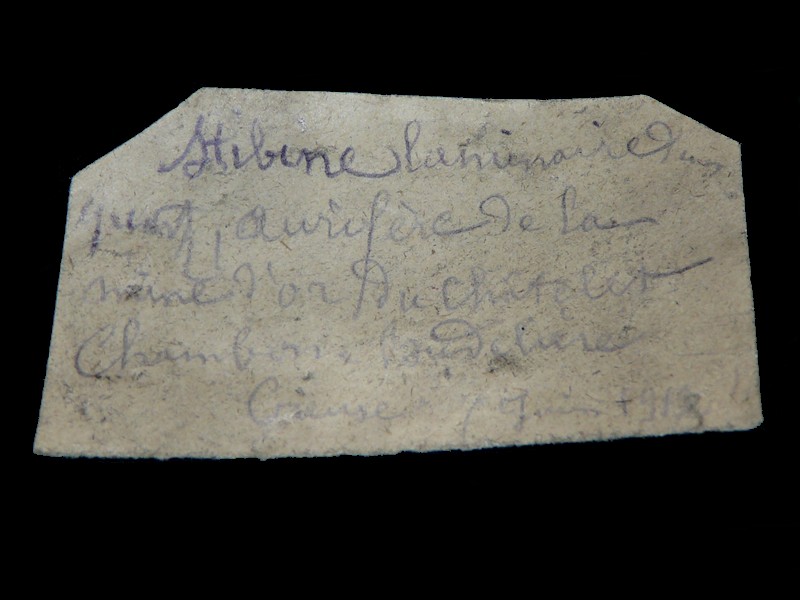 Stibine laminaire dans
quartz, aurifère de la
mine d'or du Châtelet
Chambon
Creuse 7 Juin